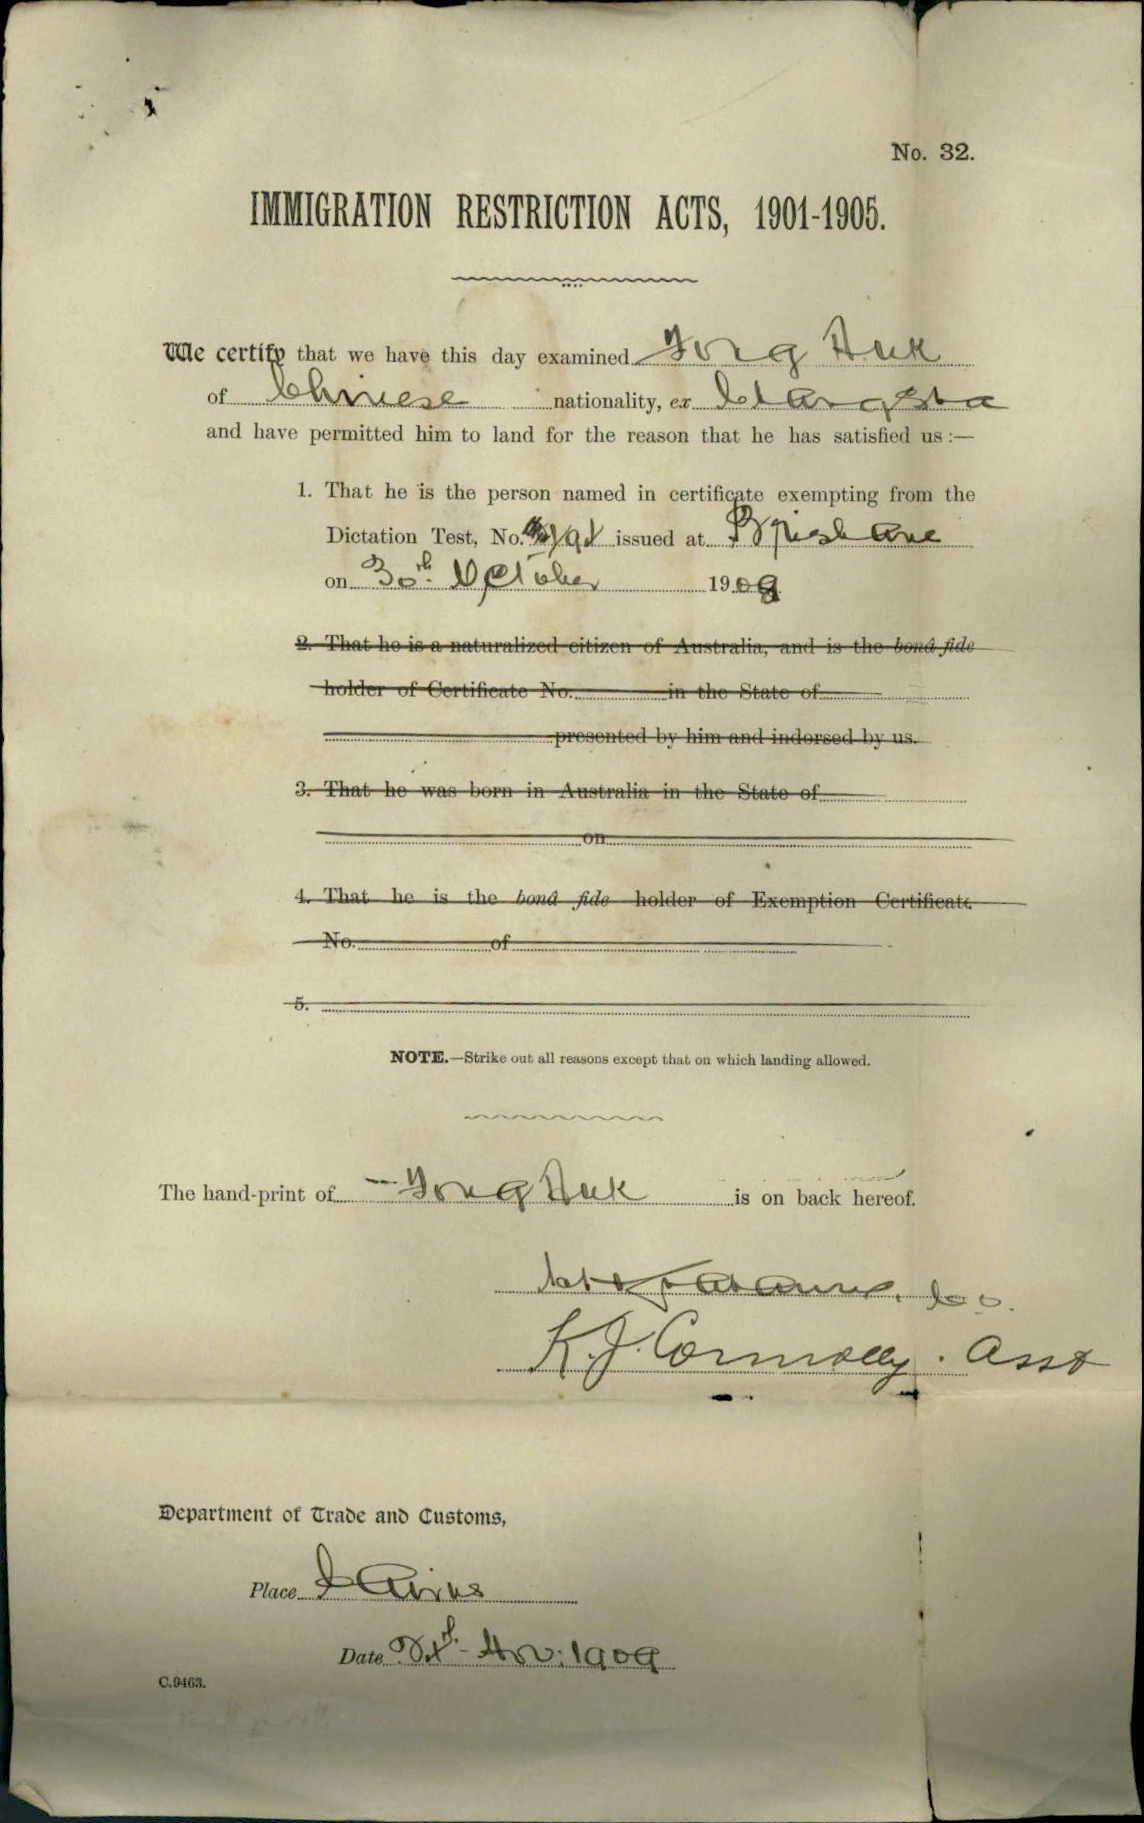 No. 32.
IMMIGRATION RESTRICTION ACTS, 1901-1905.
We certify that we have this day examined Fong Auk
of Chinese nationality, ex Changsha
and have permitted him to land for the reason that he has satisfied us :—
1. That he is the person named in certificate exempting from the
Dictation Test, No. issued at Brisbane
on 30th October 1909
2. That he is a naturalized citizen of Australia, and is the bonâ fide
holder of Certificate No. in the State of
presented by him and indorsed by us.
3. That he was born in Australia in the State of
on
4. That he is the bonâ fide holder of Exemption Certificate
No. of
5.
NOTE.—Strike out all reasons except that on which landing allowed.
The hand-print of Fong Auk is on back hereof.
K. J. Connolly. Asst
Department of Trade and Customs,
Place Cairns
Date Nov: 1909
C.9463.